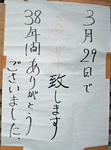 3月29日で
致します
38年間ありがとう
ございました